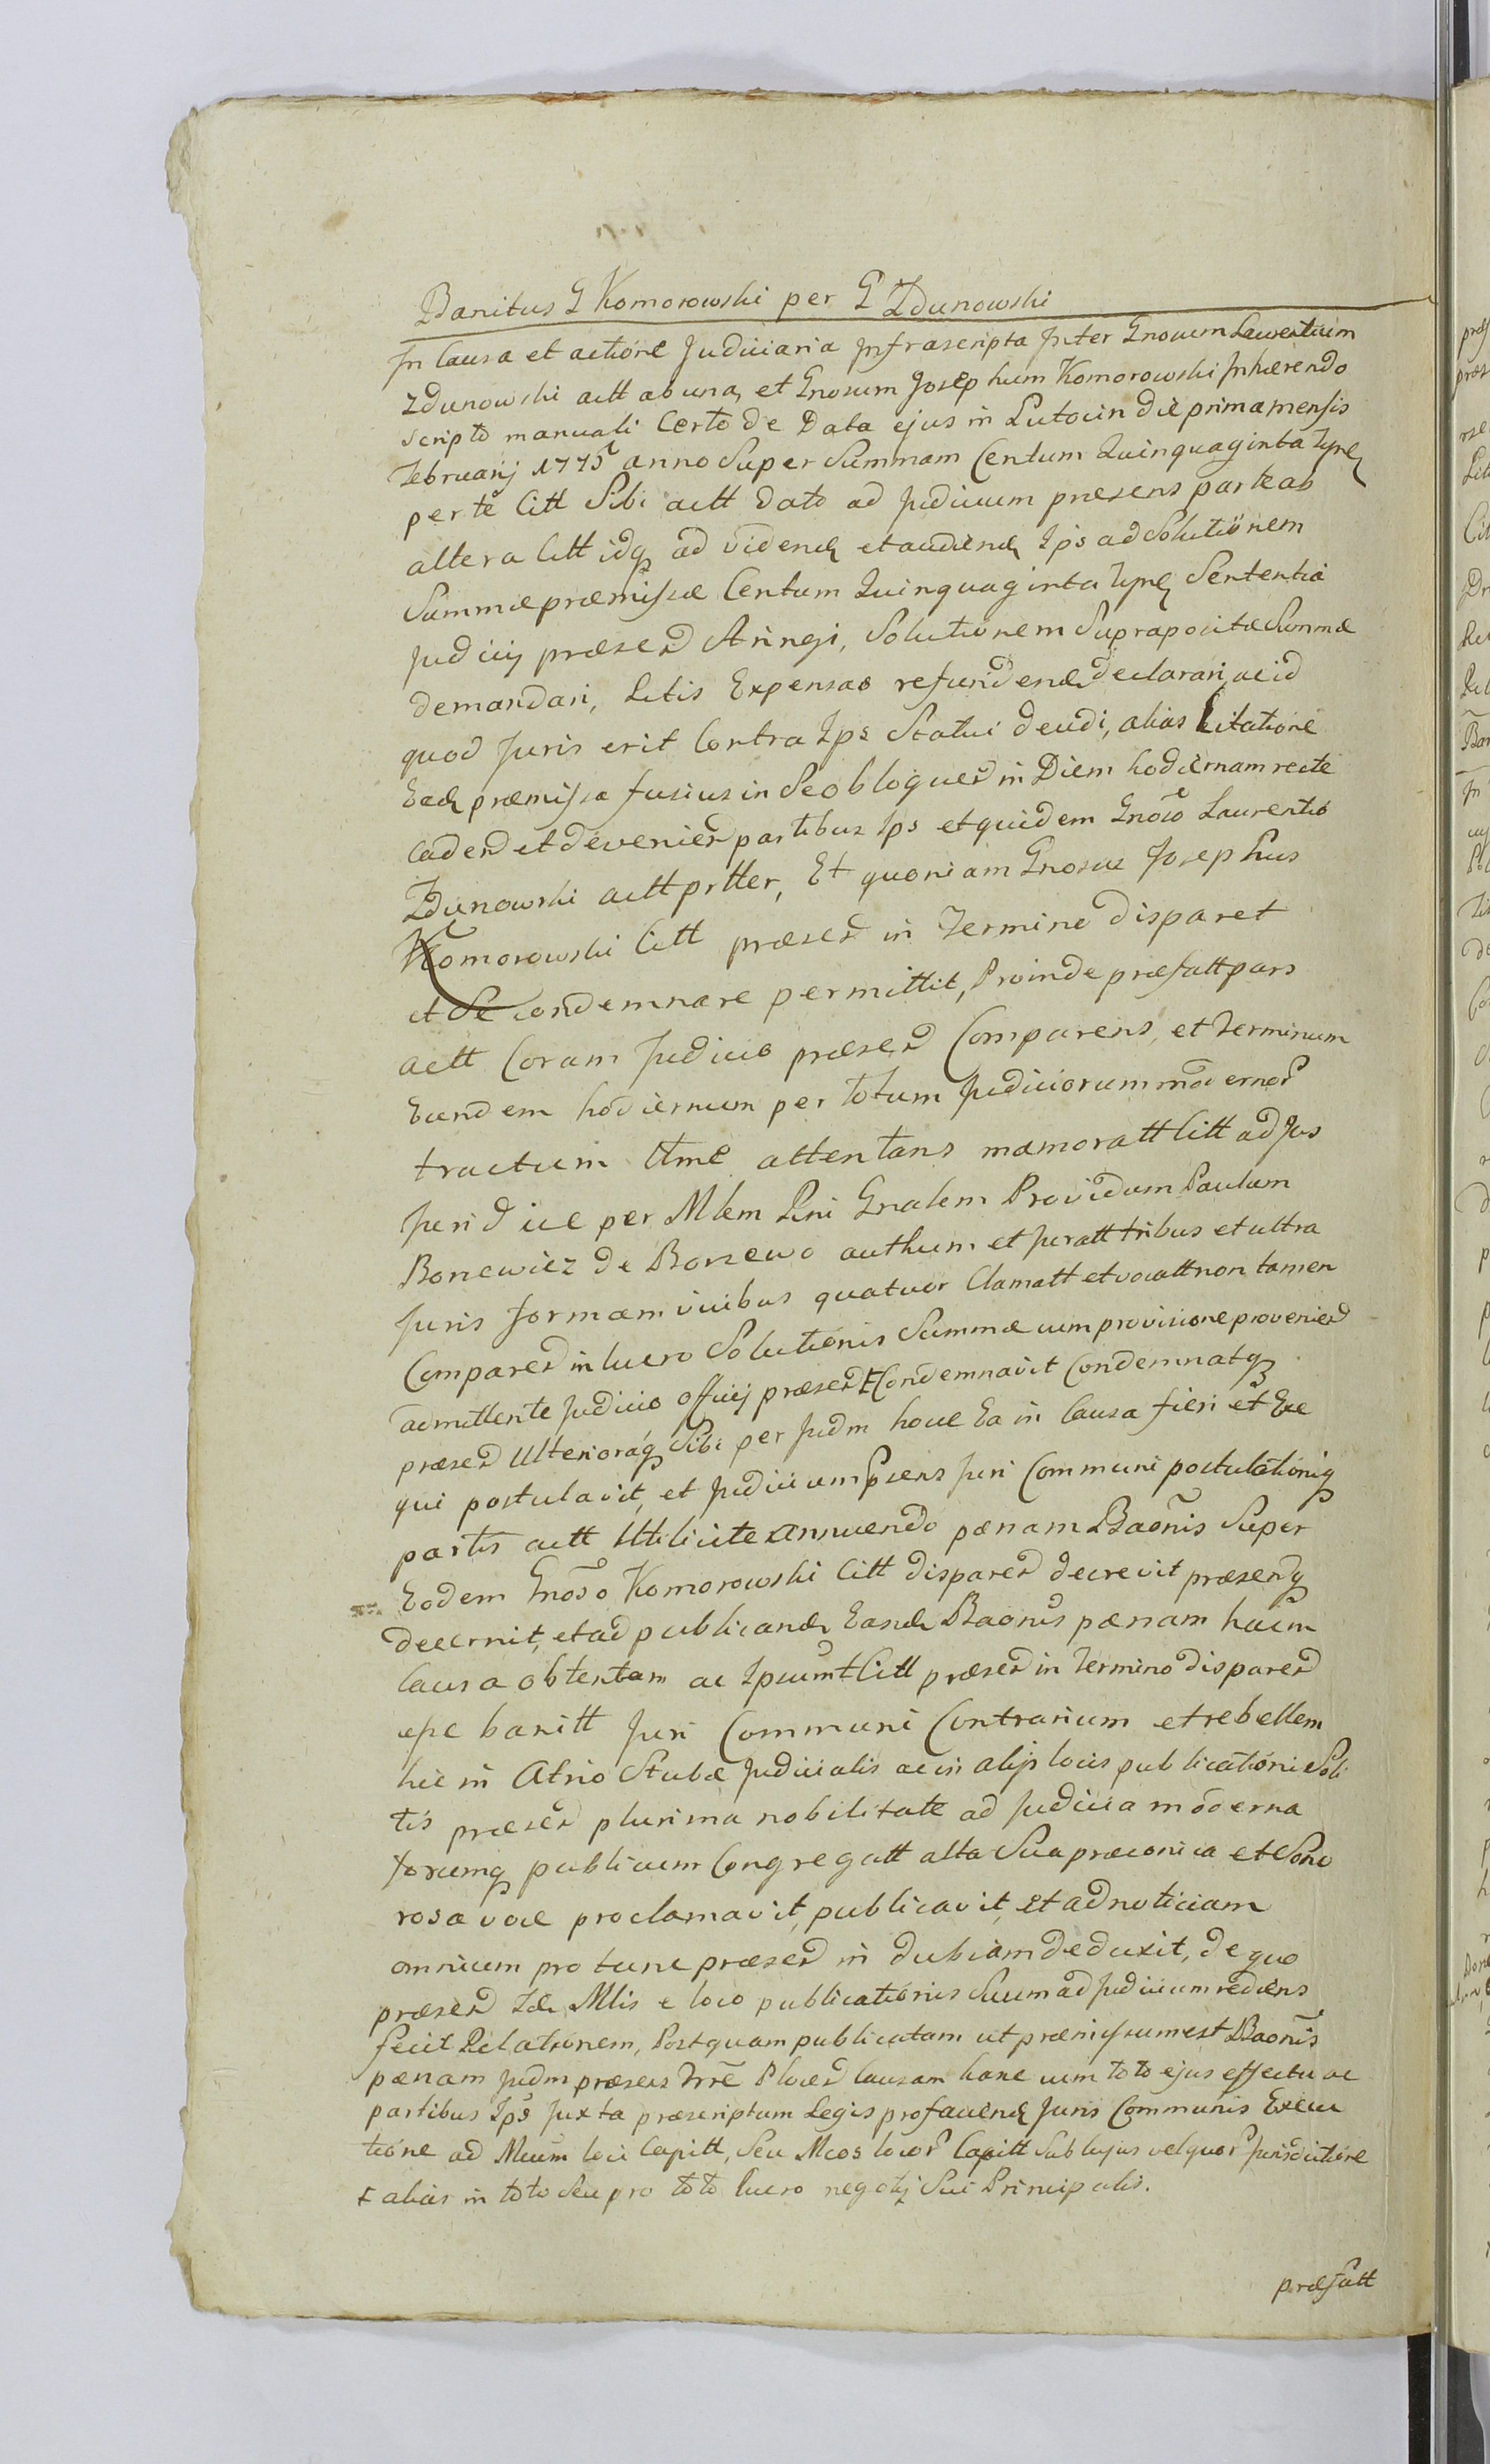 Banitus G Komorowski per G Zdunowski
In Causa et actione Judiciaria Infrascripta Inter Gnosum Laurentium
Zdunowski actt ab una, et Gnosum Josephum Komorowski Inhærendo
scripto manuali Certo de Data ejus in Lutocin die prima mensis
Februarij 1775 anno Super Summam Centum Quinquaginta Tynf
per te Citt Sibi actt dato ad Judicium præsens parte ab
altera Citt idq ad videnđ et audienđ Ips ad Solutionem
Summæ præmissæ Centum Quinquaginta Tynf Sententia
Judicij præsen Stringi, Solutionem Suprapositæ Summæ
demandari, Litis Expensas refundend declarari, ac id
quod Juris erit Contra Ips Statui deudi, alias Citatione
Eađ præmissa fusius in Se obloquen in Diem hodiernam recte
caden et devenien partibus Ips et quidem Gnoso Laurentio
Zdunowski actt prtter, Et quoniam Gnosus Josephus
Komorowski Citt præsen in Termino disparet
et Se condemnare permittit, Proinde præfatt pars
actt Coram Judicio præsen Comparens, et Terminum
Eundem hodiernum per totum Judiciorum modernor
tractum ttme attentans memoratt Citt ad Jus
Juridice per Mlem Rni Gnalem Providum Paulum
Boncwicz de Borzewo authum et Juratt tribus et ultra
Juris formam vicibus quatuor Clamatt et vocatt non tamen
Comparen in lucro Solutionis Summæ cum provisione provenien
admittente Judicio officij præsen Ɫ Condemnavit Condemnatq
præsen Ulterioraq Sibi per Judm hocce Ea in Causa fieri et Exe
qui postulavit, et Judicium Psens Juri Communi postulationiq
partis actt Utilicite annuendo pænam Baonis Super
Eodem Gnoso Komorowski Citt disparen decrevit præsenq
decernit, et ad publicanđ Eanđ Baonis pænam hac in
Causa obtentam ac Ipsum Citt præsen in Termino disparen
esse banitt Juri Communi Contrarium et rebellem
hic in Atrio Stubæ Judicialis ac in alijs locis publicationi Soli
tis præsen plurima nobilitate ad Judicia moderna
forumq publicum Congregatt alta Sua præconica et Sono
rosa voce proclamavit, publicavit, et ad noticiam
omnium pro tunc præsen in dubiam deduxit, de quo
præsen Iđ Mlis e loco publicationis Suum ad Judicium rediens
fecit Relationem, Postquam publicatam ut præmissum est Baonis
pænam Judm præsens Trre Plocen Causam hanc cum toto ejus effectu ac
partibus Ips Juxta præscriptum Legis pro facienđ Juris Communis Execu
tione ad Mcum loci Capitt, Seu Mcos locor Capitt Sub cujus vel quor Jurisdictione
Ɫ alias in toto Seu pro toto lucro negotij Sui Principalis.
præfatt